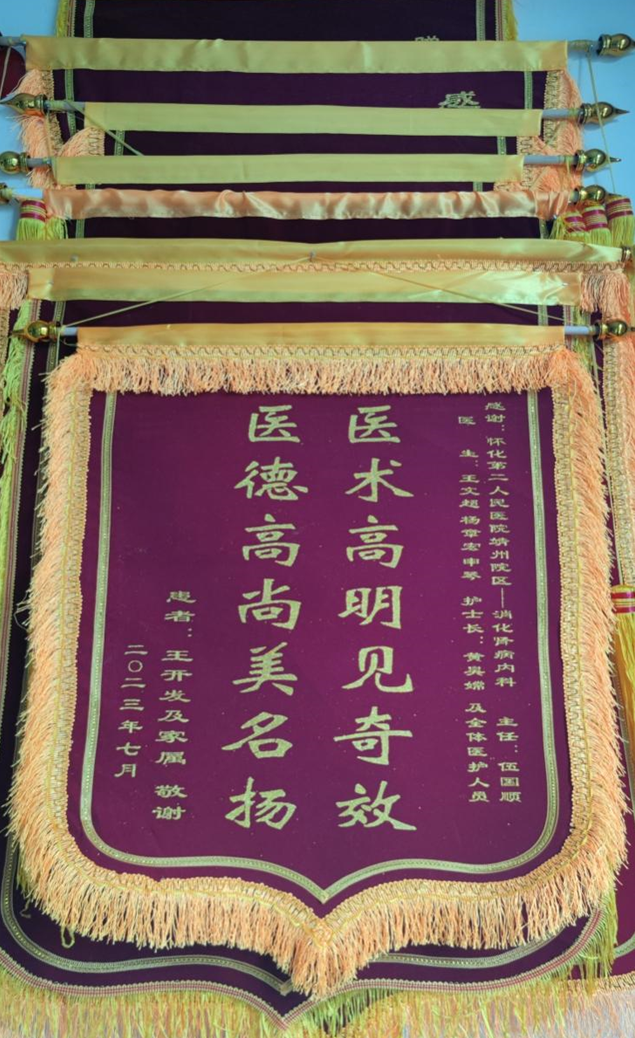 感谢：怀化第二人民医院靖州院区——消化肾病内科 主任：伍国顺
医 生：王文超杨章宏申琴 护士长：黄昊嫦 及全体医护人员
医术高明见奇效
医德高尚美名扬
患者：王开发及家属 敬谢
二〇二三年七月
感